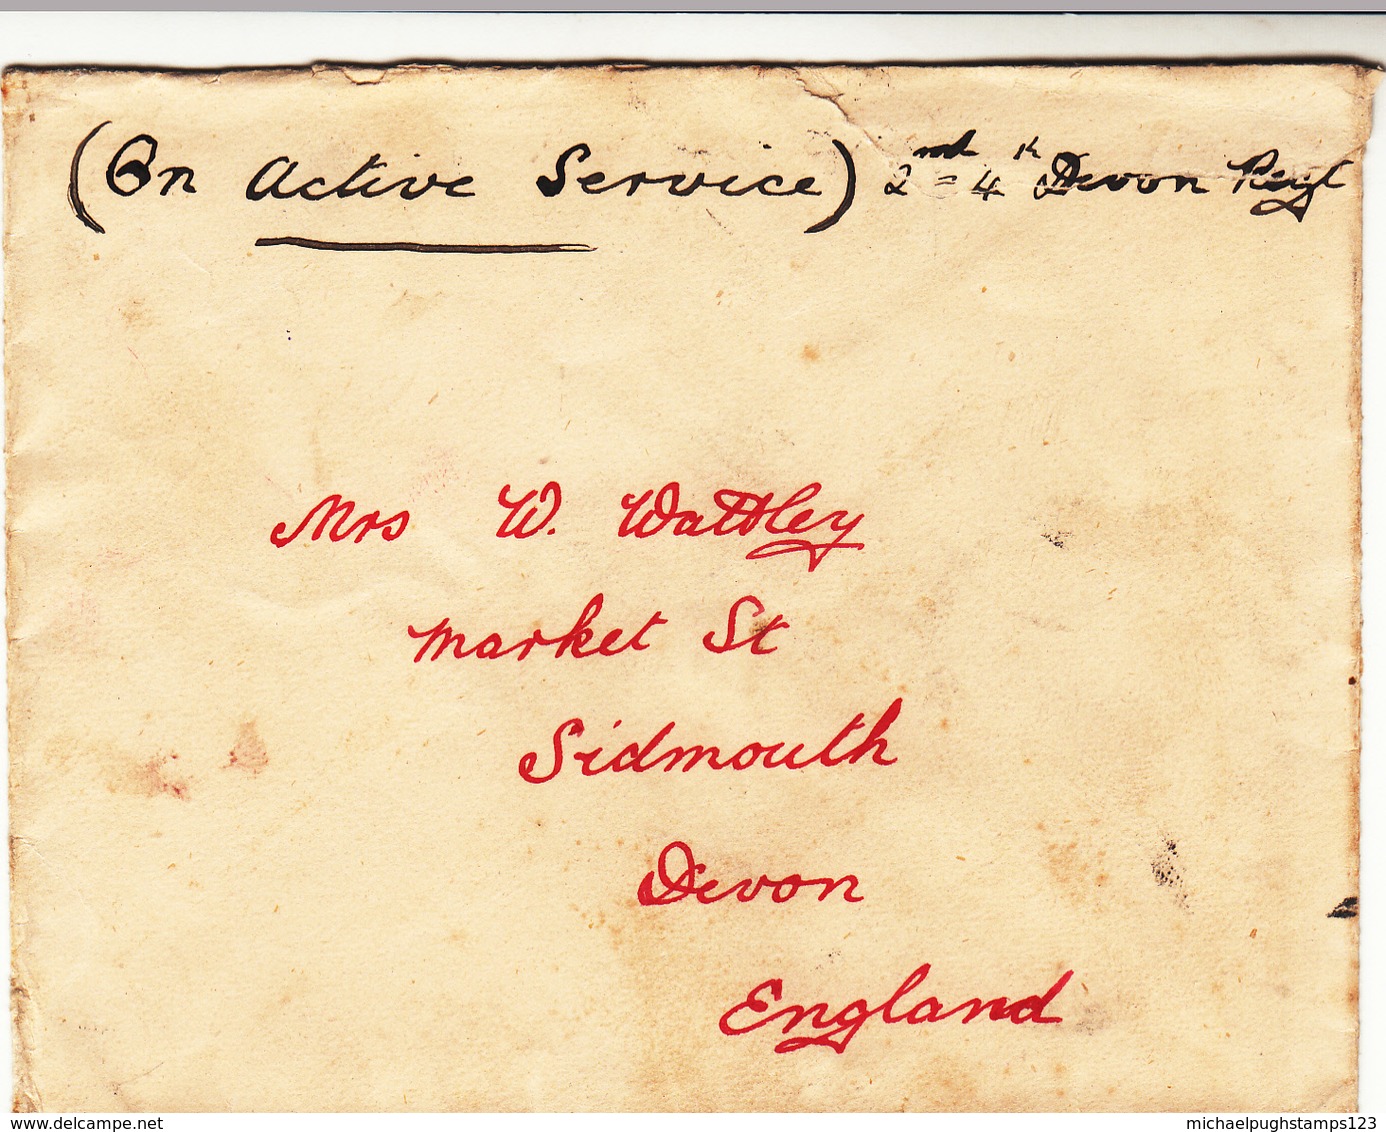 (On Active Service) 2nd = 4th Devon Regt
Mrs W. Wattley
Market St
Sidmouth
Devon
England
www.delcampe.net
michaelpughstamps123